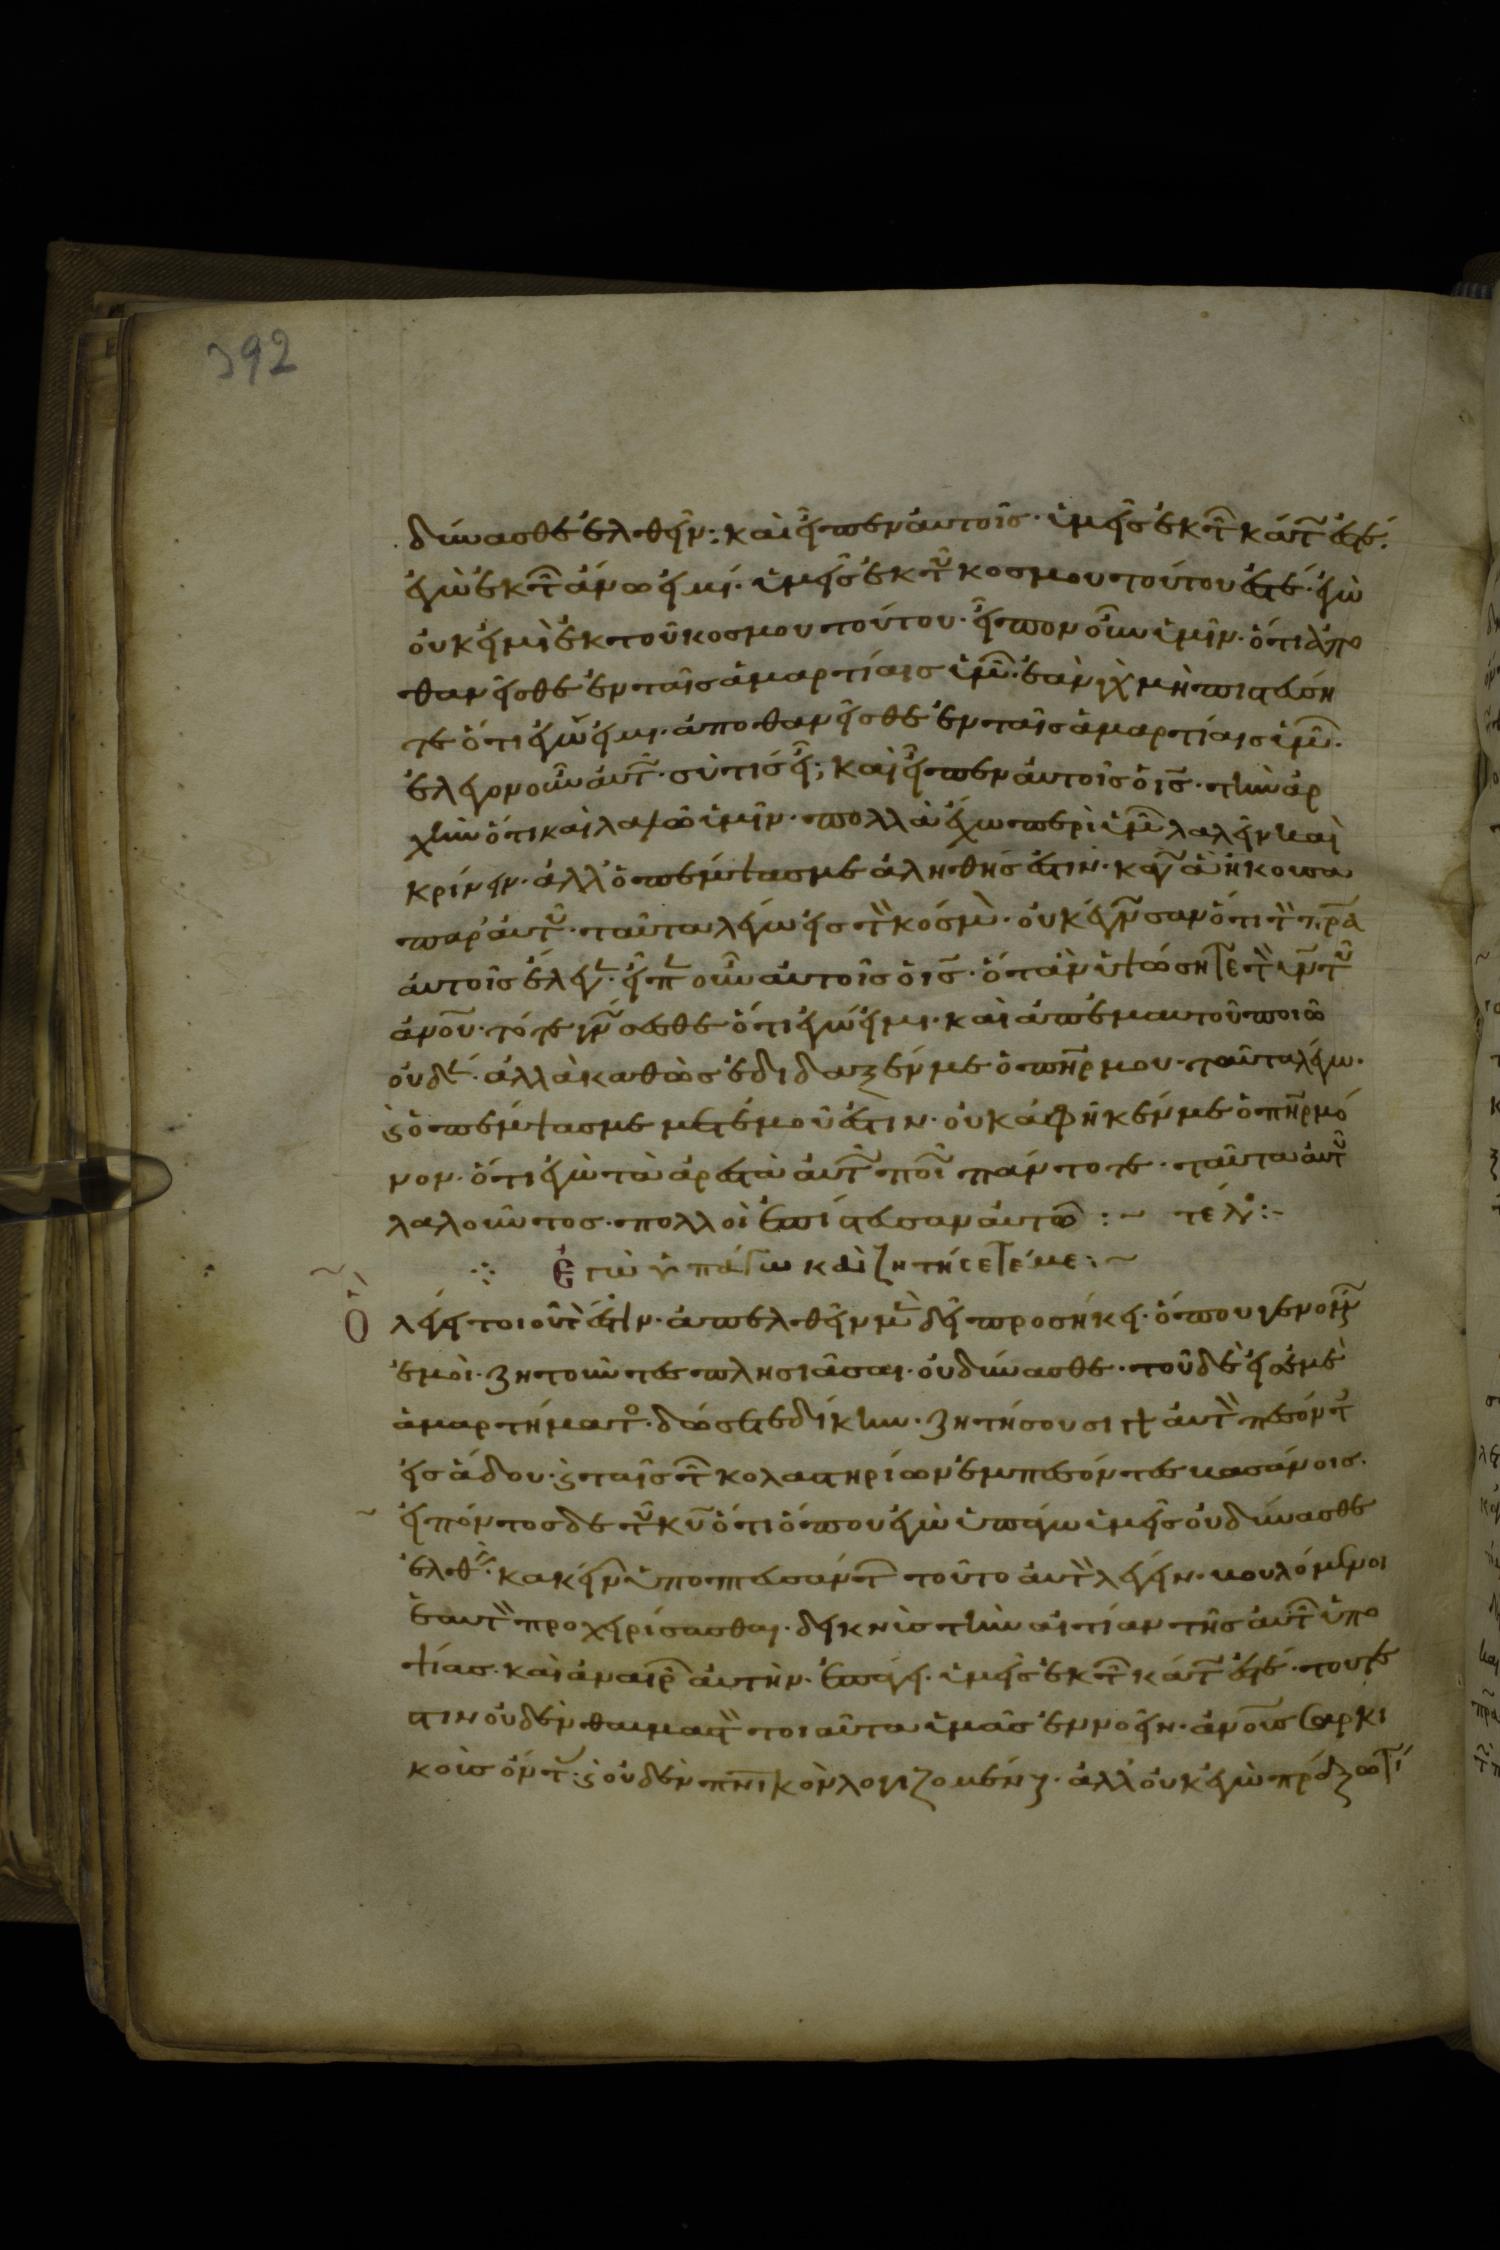 392
δύνασθε ἐλθεῖν; καὶ εἶπεν αὐτοῖς· ὑμεῖς ἐκ τῶν κάτω ἐστέ·
ἐγὼ ἐκ τῶν ἄνω εἰμί· ὑμεῖς ἐκ τοῦ κοσμου τούτου ἐστέ· ἐγὼ
οὐκ εἰμὶ ἐκ τοῦ κοσμου τούτου· εἶπον οὖν ὑμῖν· ὅτι ἀπο
θανεῖσθε ἐν ταῖς ἁμαρτίαις ὑμῶν· ἐὰν γὰρ μὴ πιστεύση
τε ὅτι ἐγώ εἰμι· ἀποθανεῖσθε ἐν ταῖς ἁμαρτίαις ὑμῶν·
ἔλεγον οὖν αὐτῶ· σὺ τίς εἶ; καὶ εἶπεν αὐτοῖς ὁ ις· τὴν ἀρ
χὴν ὅτι καὶ λαλῶ ὑμῖν· πολλὰ ἔχω περὶ ὑμῶν λαλεῖν καὶ
κρίνειν· ἀλλ' ὁ πέμψας με ἀληθής ἐστιν· κἀγὼ ἃ ἤκουσα
παρ' αὐτοῦ· ταῦτα λέγω εἰς τὸν κόσμον· οὐκ ἔγνωσαν ὅτι τὸν πρα
αὐτοῖς ἔλεγεν· εἶπεν οὖν αὐτοῖς ὁ ις· ὅταν ὑψώσητε τὸν υν τοῦ
ανου· τότε γνώσεσθε ὅτι ἐγώ εἰμι· καὶ ἀπ' ἐμαυτοῦ ποιῶ
οὐδέν· ἀλλὰ καθὼς ἐδίδαξέν με ὁ πηρ μου· ταῦτα λέγω·
κ ὁ πέμψας με μετ' ἐμοῦ ἐστιν· οὐκ ἀφῆκέν με ὁ πηρ μό
νον· ὅτι ἐγὼ τὰ ἀρεστὰ αὐτῶ ποιῶ πάντοτε· ταῦτα αὐτοῦ
λαλοῦντος· πολλοὶ ἐπίστευσαν αὐτῶ :~ τέλος :-
Ἐγὼ ὑπάγω καὶ ζητήσετέ με :~
Ὃ λέγει τοιοῦτόν ἐστιν· ἀπελθεῖν με δεῖ προσήκει· ὅπου
ἐμοί· ζητοῦντες πλησιᾶσαι· οὐ δύνασθε· τοῦ δὲ εἰς ἐμὲ
ἁμαρτήματος· δώσετε δίκην· ζητήσουσι γὰρ αὐτὸν πεσόντες
εἰς ἅδου· κ ταῖς τῶν κολαστηρίων ἐμπεσόντες βασάνοις·
εἰπόντος δὲ τοῦ κυ ὅτι ὅπου ἐγὼ ὑπάγω ὑμεῖς οὐ δύνασθε
ἐλθεῖν· κακείνων ὑποπτευσάντων τοῦτο αὐτὸν λέγειν· βουλόμενοι
ἑαυτὸν προχειρίσασθαι· δεικνὺς τὴν αἰτίαν τῆς αὐτῶν ὑπο
ψίας· καὶ ἀναιρῶν αὐτὴν· ἐπάγει· ὑμεῖς ἐκ τῶν κάτω ἐστέ· τουτέ
στιν οὐδὲν θαυμαστὸν τοιαῦτα ὑμᾶς ἐννοεῖν· ανους σαρκι
κοὺς ὄντας· κ οὐδὲν πνικὸν λογιζομένους· ἀλλ' οὐκ ἐγὼ πράξω τί